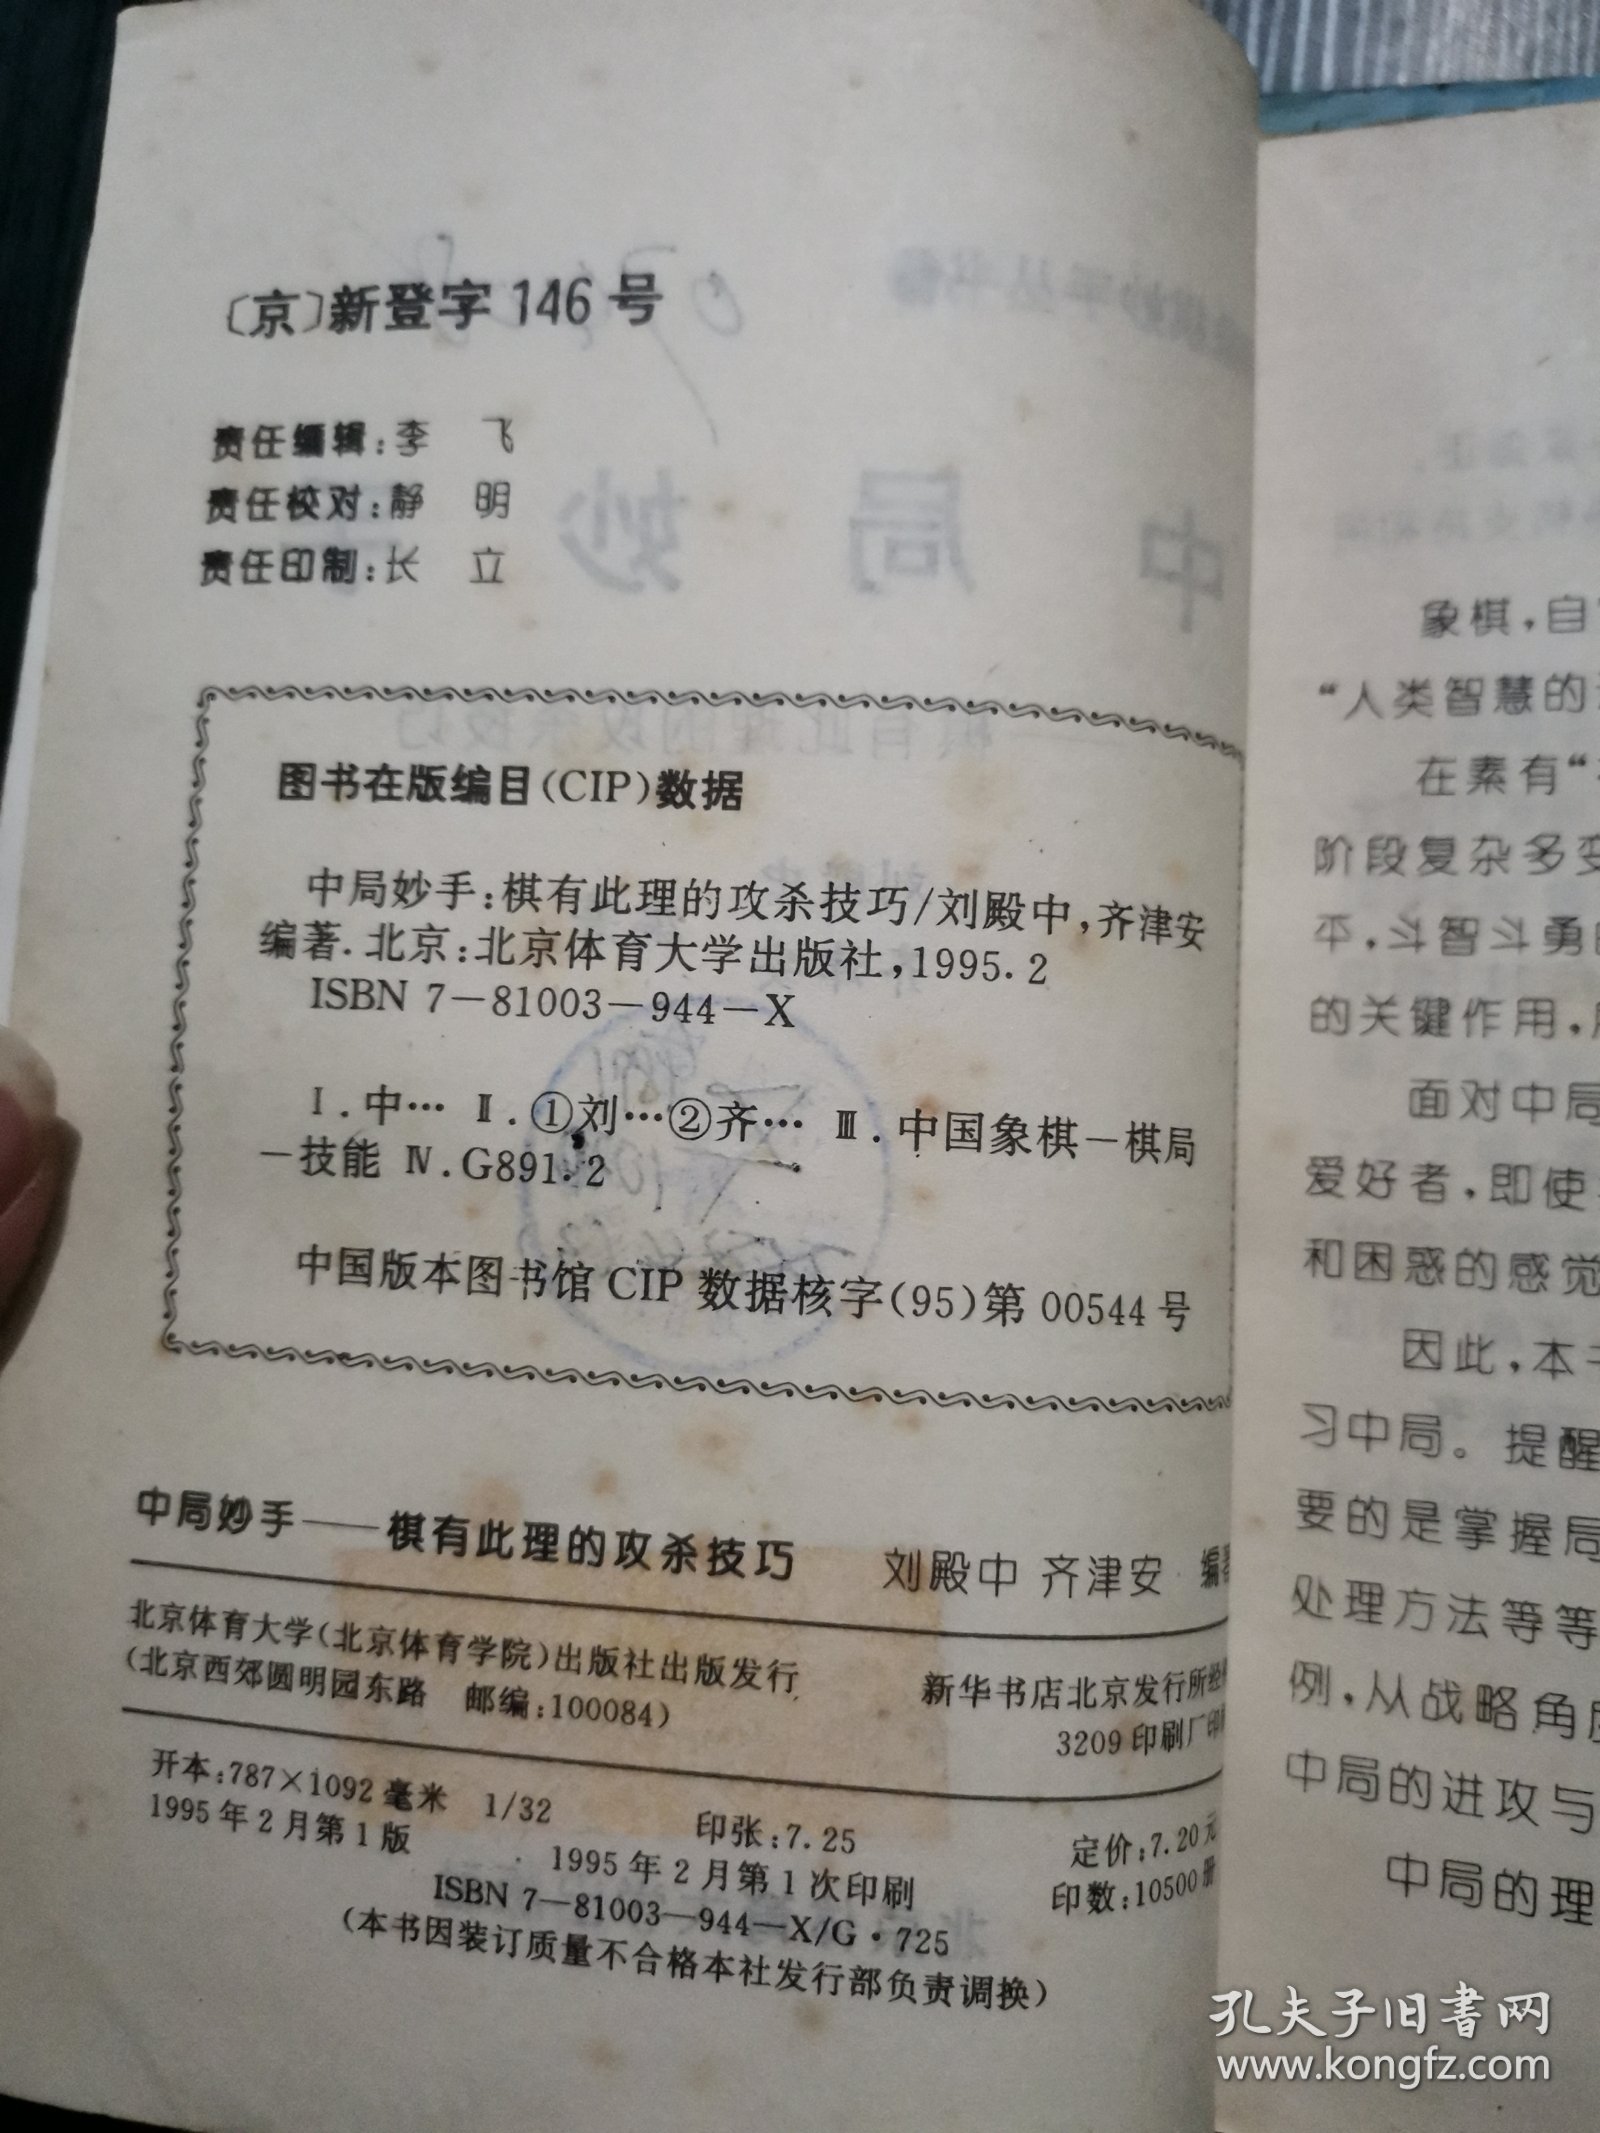 〔京〕新登字 146 号
责任编辑:李 飞
责任校对:静 明
责任印制:长 立
图书在版编目(CIP)数据
中局妙手:棋有此理的攻杀技巧/刘殿中,齐津安
编著.北京:北京体育大学出版社,1995.2
ISBN 7-81003-944-X
Ⅰ.中… Ⅱ.①刘…②齐… Ⅲ.中国象棋-棋局
-技能 Ⅳ.G891.2
中国版本图书馆 CIP 数据核字(95)第 00544 号
中局妙手——棋有此理的攻杀技巧 刘殿中 齐津安 编著
北京体育大学(北京体育学院)出版社出版发行
(北京西郊圆明园东路 邮编:100084)
新华书店北京发行所经
3209 印刷厂印
开本:787×1092 毫米 1/32 印张:7.25 定价:7.20 元
1995 年 2 月第 1 版 1995 年 2 月第 1 次印刷 印数:10500 册
ISBN 7-81003-944-X/G·725
(本书因装订质量不合格本社发行部负责调换)
象棋,自
“人类智慧的
在素有“
阶段复杂多变
平,斗智斗勇
的关键作用,
面对中局
爱好者,即使
和困惑的感觉
因此,本
习中局。提醒
要的是掌握局
处理方法等等
例,从战略角度
中局的进攻与
中局的理
孔夫子旧书网
www.kongfz.com